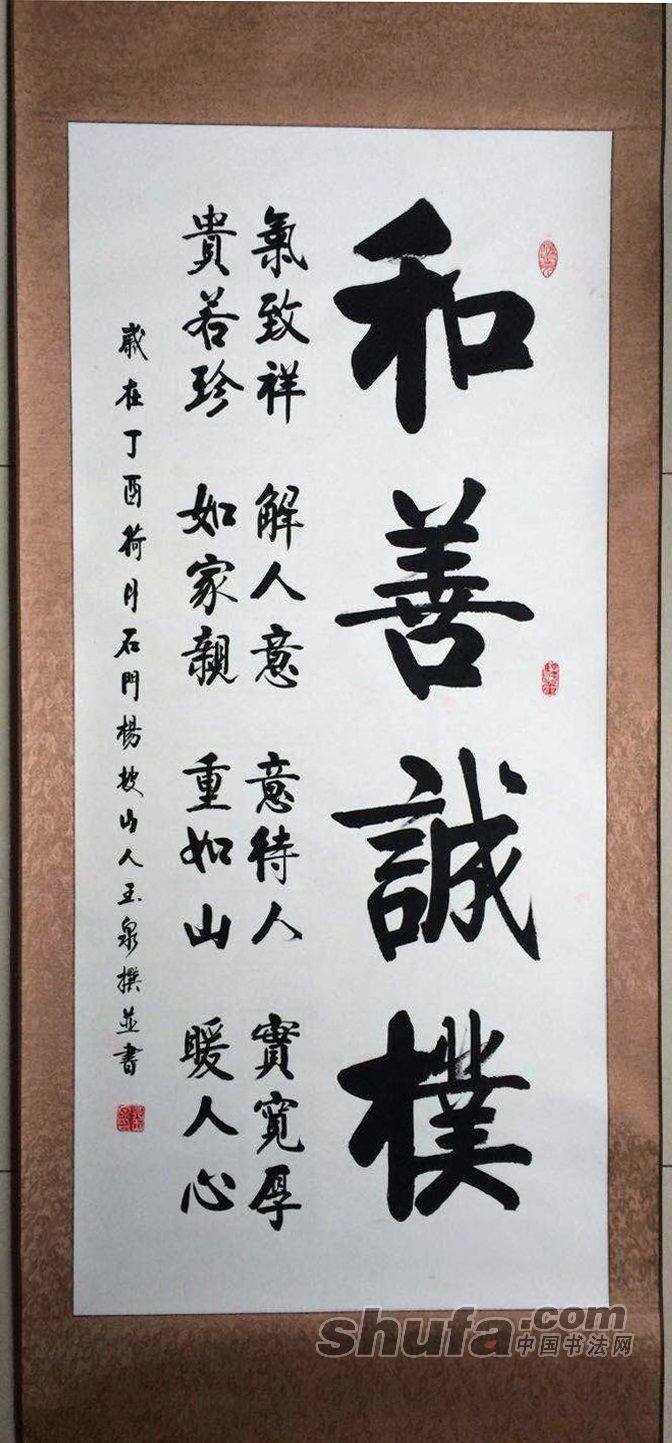 和善誠樸
氣致祥 解人意 意待人 實寬厚
貴若珍 如家親 重如山 暖人心
歲在丁酉荷月石門楊坡山人玉泉撰並書
shufa.com
中国书法网